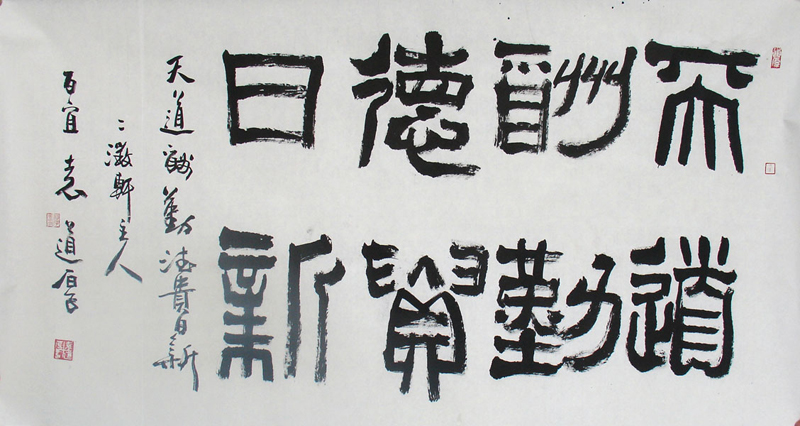 天道
酬勤
德貴
日新
天道酬勤德貴日新
二澂軒主人
百宜 道